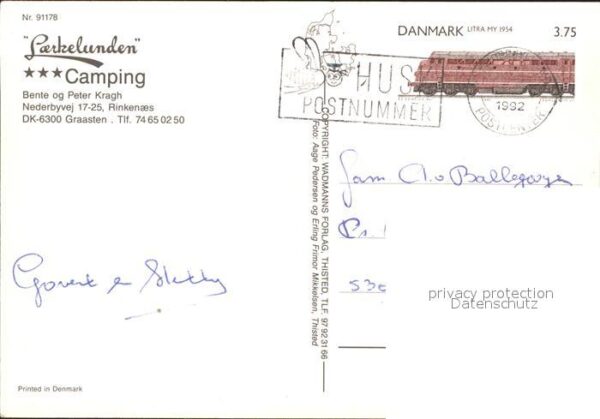 Nr. 91178
"Lærkelunden"
★★★Camping
Bente og Peter Kragh
Nederbyvej 17-25, Rinkenæs
DK-6300 Graasten . Tlf. 74 65 02 50
DANMARK LITRA MY 1954 3.75
HUSK
POSTNUMMER
1992
COPYRIGHT: WADMANNS FORLAG, THISTED, TLF. 97 92 31 66
Foto: Aage Pedersen og Erling Frimor Mikkelsen, Thisted
Fam
privacy protection
Datenschutz
Printed in Denmark